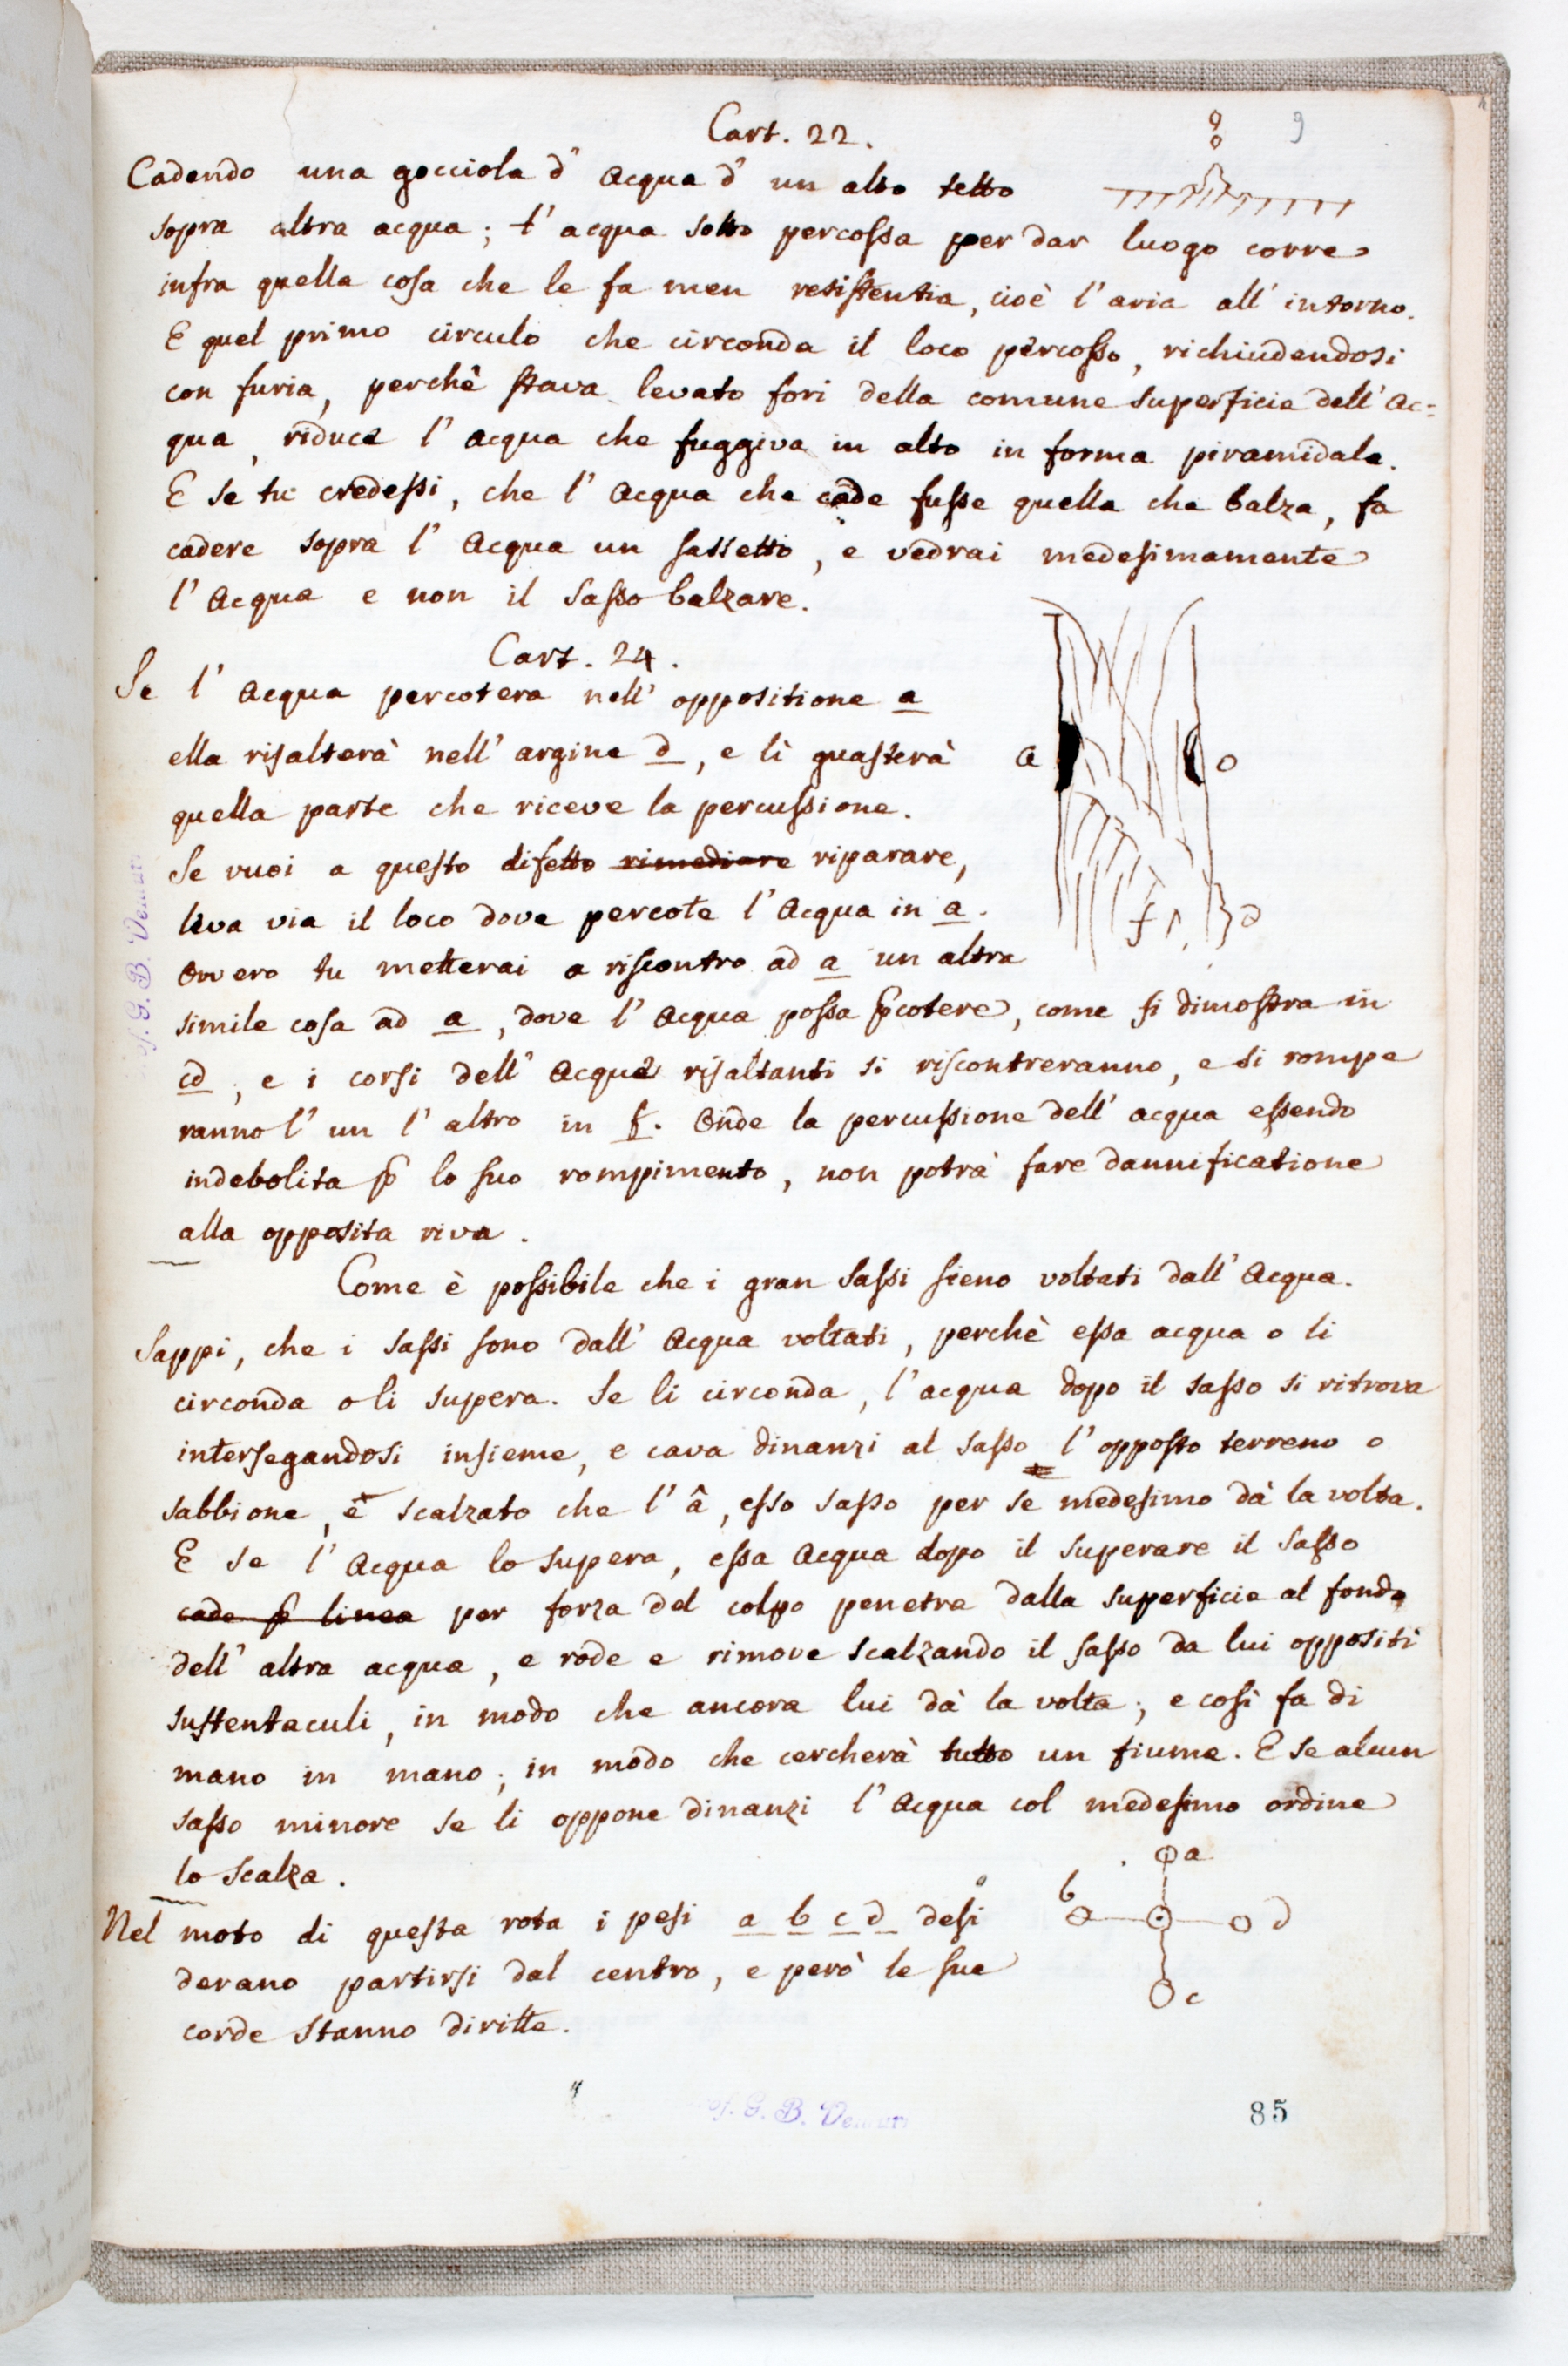 9
Cart. 22.
Cadendo una gocciola d' Acqua d' un alto tetto
sopra altra acqua; l' acqua sotto percoſsa per dar luogo corre
infra quella coſa che le fa men reſiſtentia, cioè l' aria all' intorno.
E quel primo circulo che circonda il loco percoſso, richiudendosi
con furia, perchè ſtava levato fori della comune superficie dell' Ac=
qua, riduce l' Acqua che fuggiva in alto in forma piramidale.
E se tu credeſsi, che l' Acqua che cade fuſse quella che balza, fa
cadere sopra l' Acqua un ſassetto, e vedrai medeſimamente
l' Acqua e non il Saſso balzare.
Cart. 24.
Se l' Acqua percotera nell' oppositione a
ella riſalterà nell' argine d, e lì guaſterà
quella parte che riceve la percuſsione.
Se vuoi a queſto difetto rimediare riparare,
leva via il loco dove percote l' Acqua in a.
Ovvero tu metterai a riſcontro ad a un altra
simile coſa ad a, dove l' Acqua poſsa ꝑcotere, come ſi dimoſtra in
cd, e i corſi dell' Acqua riſaltanti si riſcontreranno, e si rompe
ranno l' un l' altro in f. Onde la percuſsione dell' acqua eſsendo
indebolita ꝑ lo ſuo rompimento, non potrà fare dannificatione
alla opposita riva.
Come è poſsibile che i gran Saſsi ſieno voltati dall' Acqua.
Sappi, che i Saſsi ſono dall' Acqua voltati, perchè eſsa acqua o li
circonda o li supera. Se li circonda, l' acqua dopo il saſso si ritrova
interſegandosi inſieme, e cava dinanzi al saſso l' oppoſto terreno o
sabbione, e scalzato che l' â, eſso saſso per se medeſimo dà la volta.
E se l' Acqua lo supera, eſsa Acqua dopo il superare il Saſso
cade ꝑ linea per forza del colpo penetra dalla superficie al fondo
dell' altra acqua, e rode e rimove scalzando il ſaſso da lui oppositi
suſtentaculi, in modo che ancora lui dà la volta; e coſì fa di
mano in mano; in modo che cercherà tutto un fiume. E se alcun
saſso minore se li oppone dinanzi l' Acqua col medeſimo ordine
lo Scalza.
Nel moto di queſta rota i peſi a b c d deſi
derano partirſi dal centro, e però le ſue
corde stanno diritte.
a o
f d
a
b d
c
G. B.
85